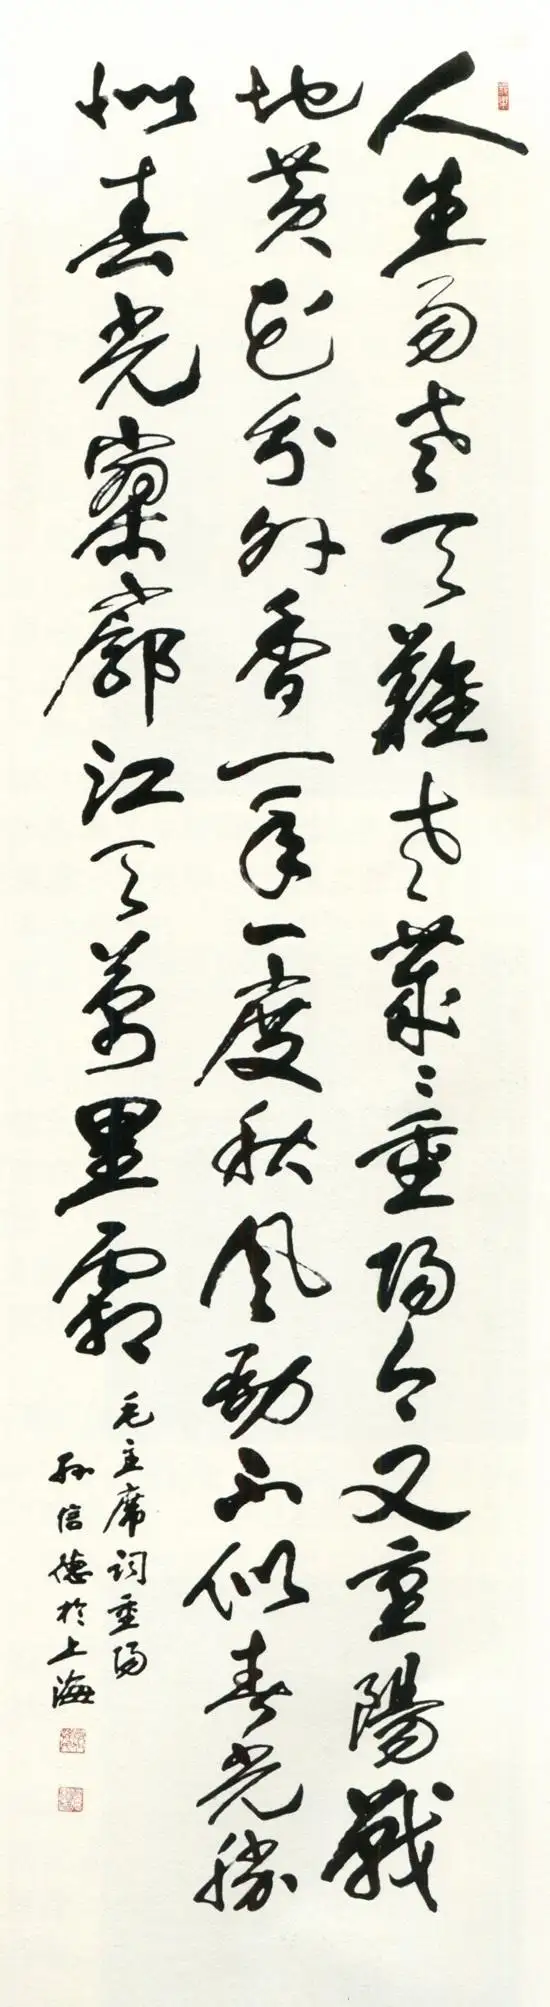 人生易老天难老岁〻重阳今又重陽戰
地黄花分外香一年一度秋风劲不似春光勝
似春光寥廓江天萬里霜
毛主席词重阳
孙信德於上海